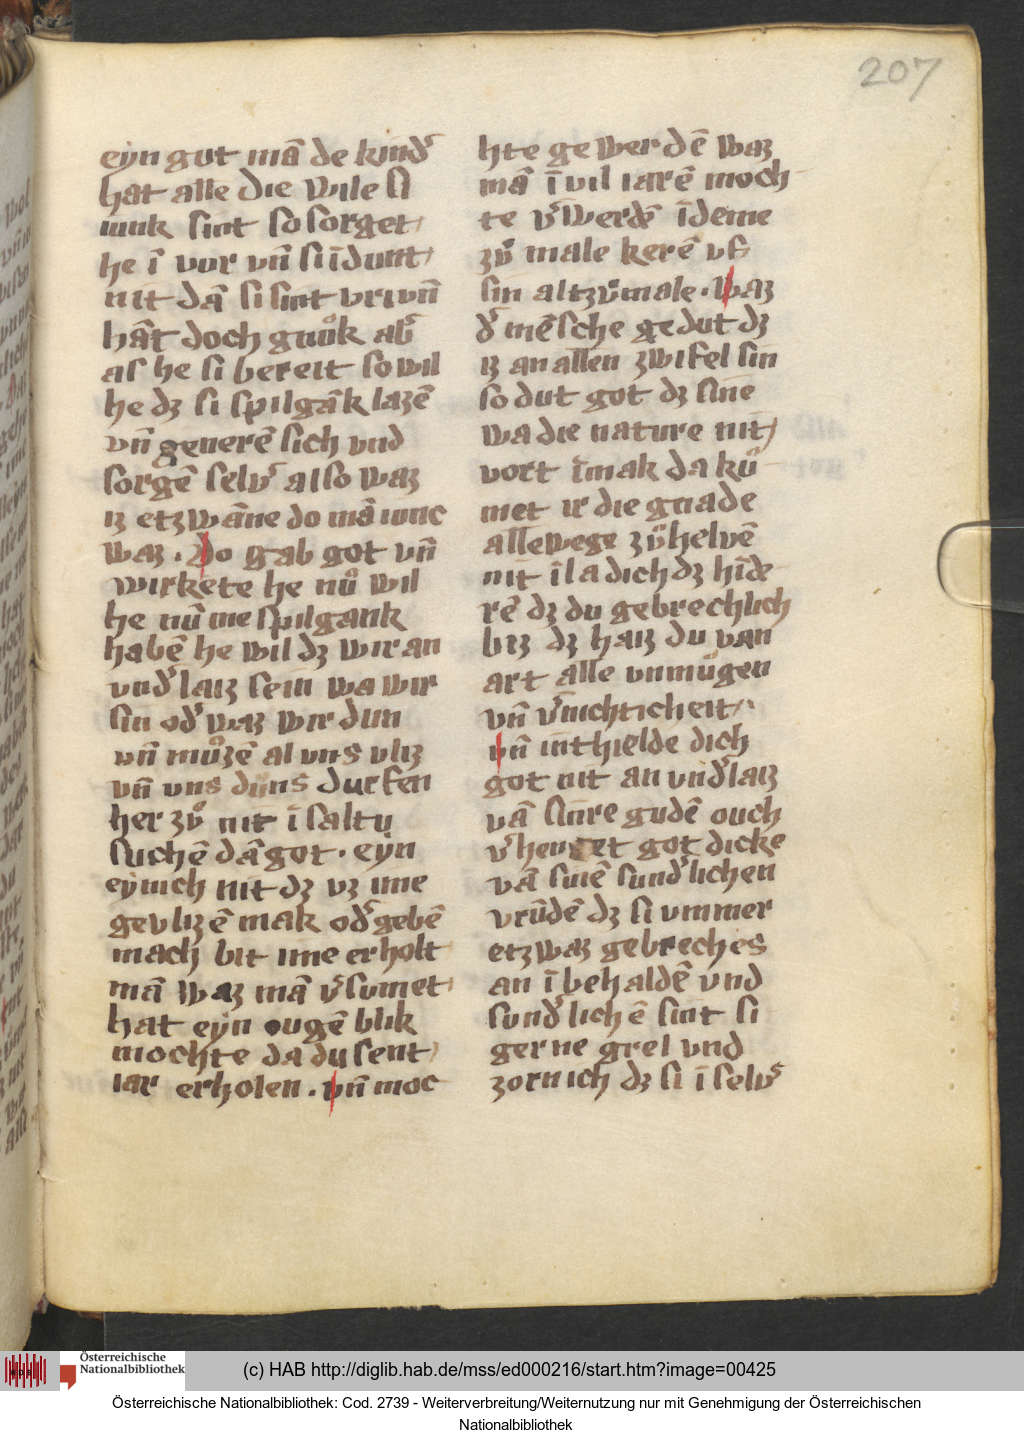 207
eyn gut mā de kindʼ
hat alle die wile si
iunk sint so sorget
he ī vur vn̄ si īdunt
nit dā si sint vrivn̄
hāt doch gnuͦk abʼ
als he si bereit so wil
he dz si spilgāk lazē
vn̄ geuerē sich vnd
sorgē selvʼ also waz
iz etzwāne do mā iunc
waz . Do gab got vn̄
wirkete he nuͦ wil
he nū me spilgank
habē he wil dz wir an
vndʼlaiz sein wa wir
sin odʼ waz wir dun
vn̄ muͦzē al vns vliz
vn̄ vns duͦns durfen
her zvͦ nit ī saltu
suchē dā got . eyn
eynich nit dz vz ime
gevlizē mak odʼ gebē
mach bit ime erholt
mā waz mā vʼsumet
hat eyn ougē blik
mochte da dusent
iar erholen . vn̄ moc
hte gewerdē waz
mā ī vil iarē moch
te vʼwerdē ī deme
zvͦ male kerē vf
sin altzvͦmale . Waz
dʼ mēsche gedut dz
iz an allen zwifel sin
so dut got dz sine
wa die nature nit
vort īmak da kuͦ
met ir die gnade
allewege zvͦ helvē
nit ī la dich dz hīde
rē dz du gebrechlich
biz dz haiz du van
art alle vnmuͦgen
vn̄ vʼnichticheit
vn̄ inthielde dich
got nit an vndʼlaiz
vā sinre gudē ouch
vʼhenget got dicke
vā suiē sundʼlichen
vrūdē dz si vmmer
etzwaz gebreches
an ī behaldē vnd
sundʼlichē sint si
gerne grel vnd
zornich dz si ī selvʼ
Österreichische
Nationalbibliothek
(c) HAB http://diglib.hab.de/mss/ed000216/start.htm?image=00425
Österreichische Nationalbibliothek: Cod. 2739 - Weiterverbreitung/Weiternutzung nur mit Genehmigung der Österreichischen
Nationalbibliothek